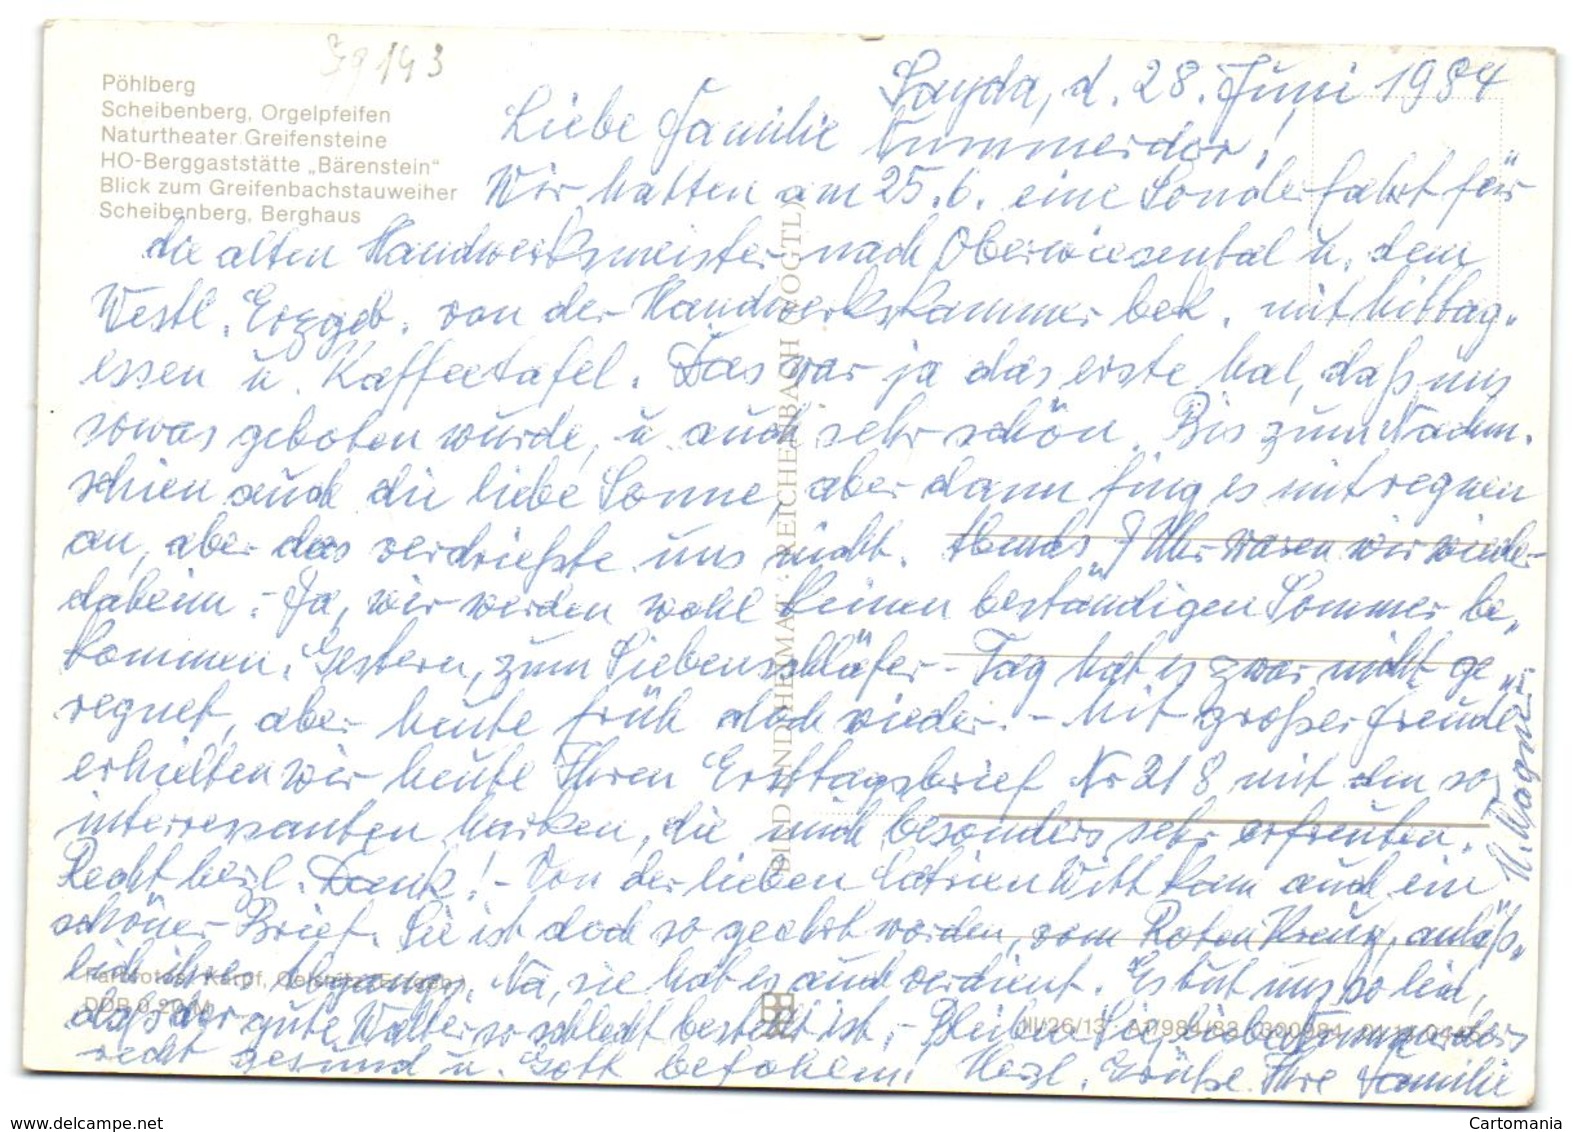 39143
Pöhlberg
Scheibenberg, Orgelpfeifen
Naturtheater Greifensteine
HO-Berggaststätte „Bärenstein"
Blick zum Greifenbachstauweiher
Scheibenberg, Berghaus
Sayda, d. 28. Juni 1984
Liebe Familie Nummerdor!
Wir hatten am 25.6. eine Sonderfahrt für
die alten Handwerksmeister nach Oberwiesental u. dem
Westl. Erzgeb. von der Handwerkskammer bek. mit Mittag-
essen u. Kaffeetafel. Das war ja das erste Mal, daß uns
sowas geboten wurde, u auch sehr schön. Bis zum Nachm.
schien auch die liebe Sonne, aber dann fing es mit regnen
an, aber das verdrießte uns nicht. Abends 7 Uhr waren wir wieder
daheim. - Ja, wir werden wohl keinen beständigen Sommer be-
kommen. Gestern, zum Siebenschläfer-Tag hat es zwar nicht ge-
regnet, aber heute früh doch wieder. - Mit großer Freude
erhielten wir heute Ihren Ersttagsbrief Nr 218 mit den so
interressanten Marken, die mich besonders sehr erfreuten.
Recht herzl. Dank! - Von der lieben Witt kam auch ein
schöner Brief. Sie ist doch so geehrt worden, vom Roten Kreuz, anläß-
lich ihres Abgangs. Na, sie hat es auch verdient. Es tut uns so leid,
daß der gute Walter so schlecht bestellt ist. - Bleiben Sie liebe Nummerdors
recht gesund u. Gott befohlen! Herzl. Grüße Ihre Familie
M. Wagner
BILD UND HEIMAT · REICHENBACH (VOGTL)
Farbfotos: Karpf, Oelsnitz (Erzgeb.)
DDR 0,20 M
III/26/13 A1/984/83 300984